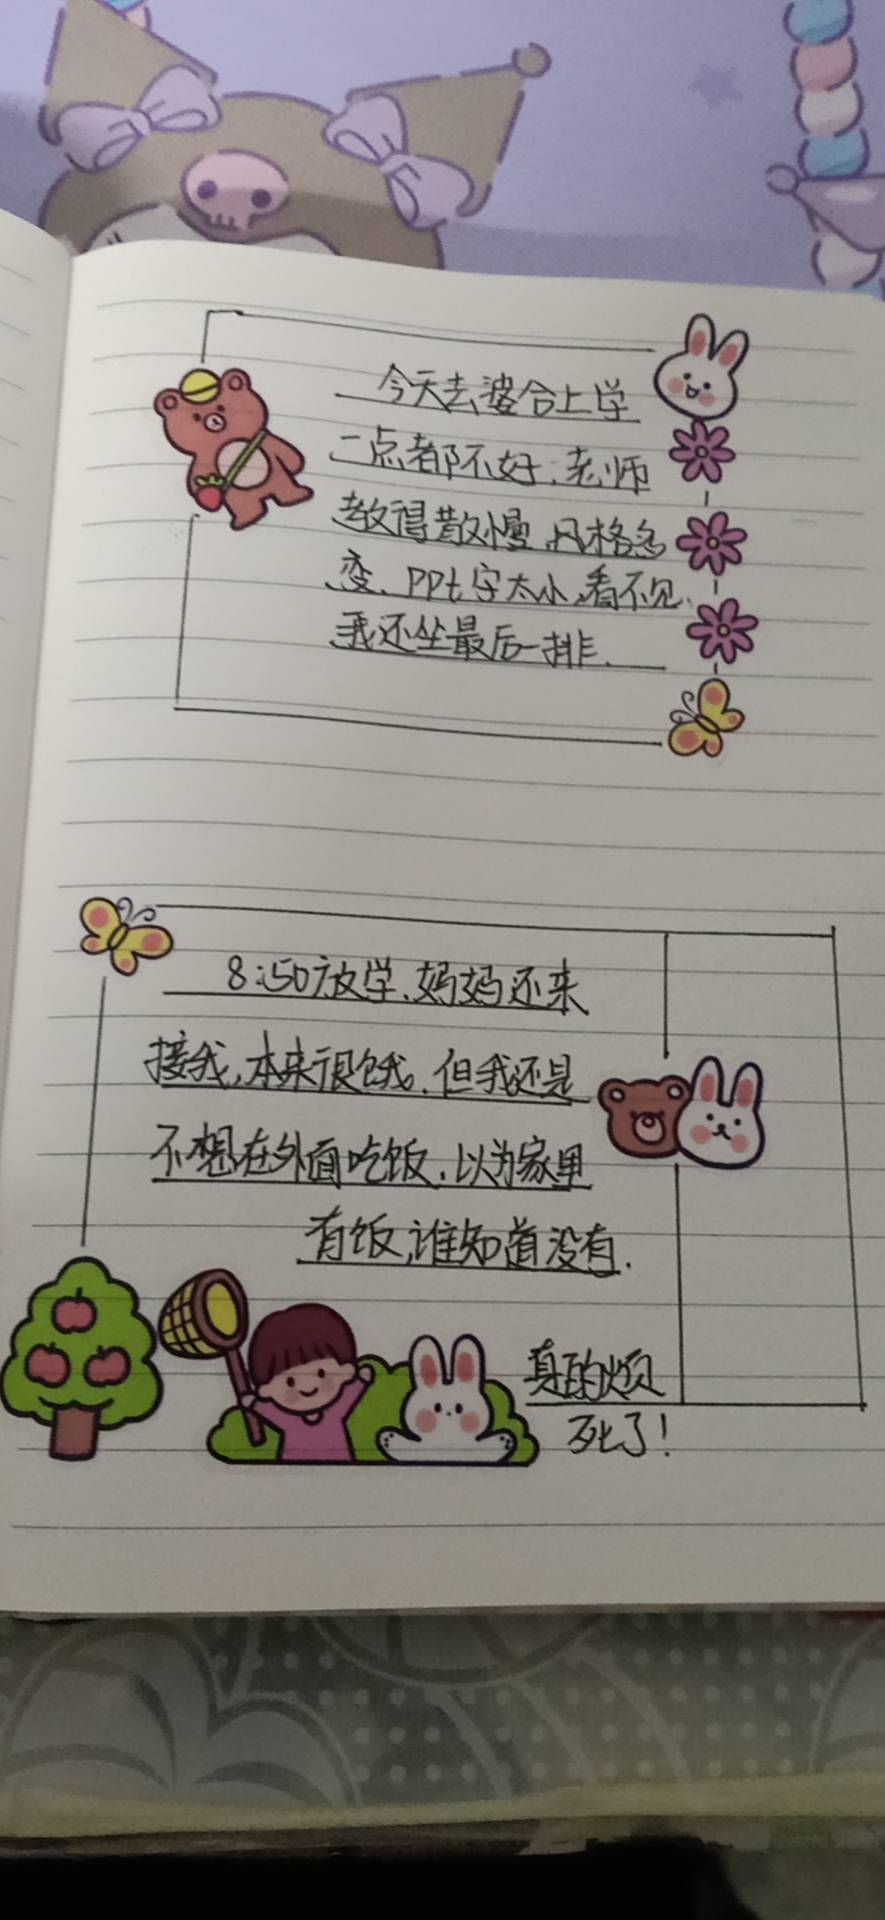 今天去婆合上学
一点都不好,老师
教得散慢,风格多
变、PPt字太小,看不见,
我还坐最后一排.
8:50放学、妈妈还来
接我,本来很饿,但我还是
不想在外面吃饭,以为家里
有饭,谁知道没有.
真的烦
死了!